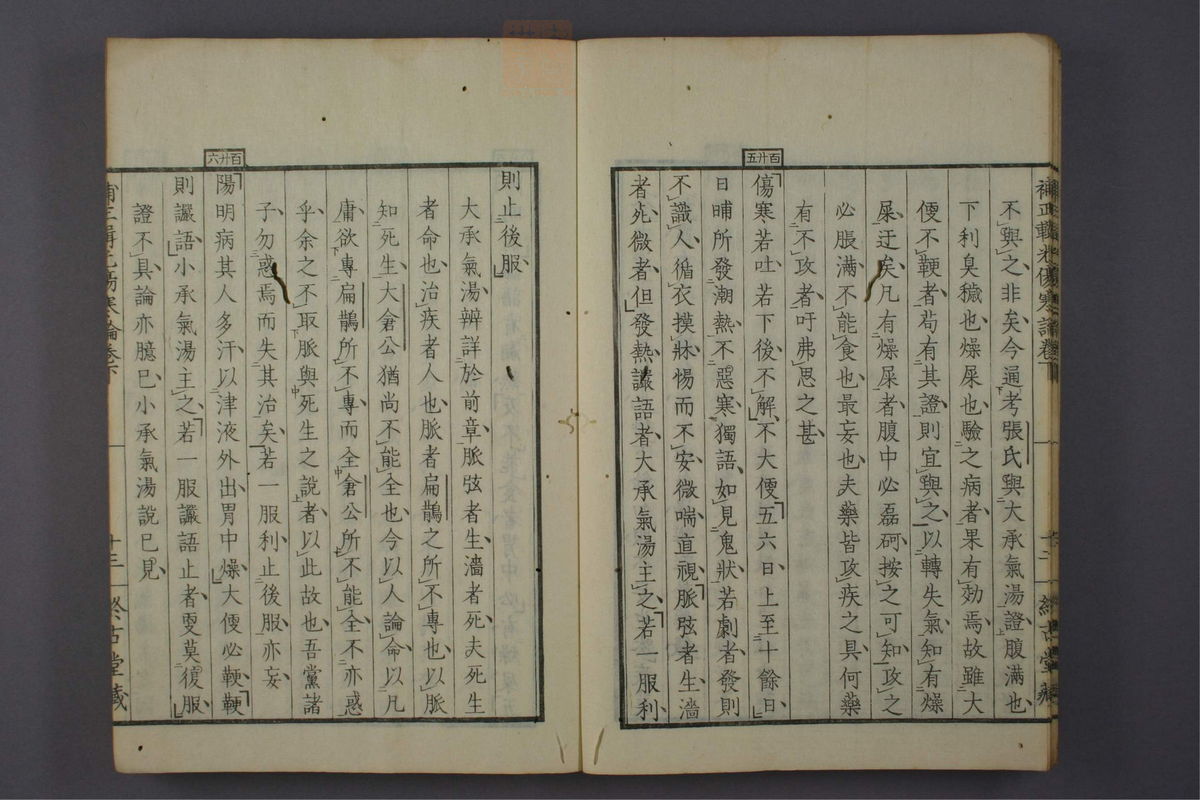 補正輯光傷寒論卷下
不與之非矣今遍考張氏與大承氣湯證腹滿也
下利臭穢也燥屎也驗之病者果有効焉故雖大
便不鞕者苟有其證則宜與之以轉失氣知有燥
屎迂矣凡有燥屎者腹中必磊砢按之可知攻之
必脹滿不能食也最妄也夫藥皆攻疾之具何藥
有不攻者吁弗思之甚
百廿五
傷寒若吐若下後不解不大便五六日上至十餘日
日晡所發潮熱不惡寒獨語如見鬼狀若劇者發則
不識人循衣摸牀惕而不安微喘直視脈弦者生濇
者死微者但發熱讝語者大承氣湯主之若一服利
則止後服
大承氣湯辨詳於前章脈弦者生濇者死夫死生
者命也治疾者人也脈者扁鵲之所不專也以脈
知死生大倉公猶尚不能全也今以人論命以凡
庸欲專扁鵲所不專而全倉公所不能全不亦惑
乎余之不取脈與死生之說者以此故也吾黨諸
子勿惑焉而失其治矣若一服利止後服亦妄
百廿六
陽明病其人多汗以津液外出胃中燥大便必鞕鞕
則讝語小承氣湯主之若一服讝語止者更莫復服
證不具論亦臆已小承氣湯說已見
十三